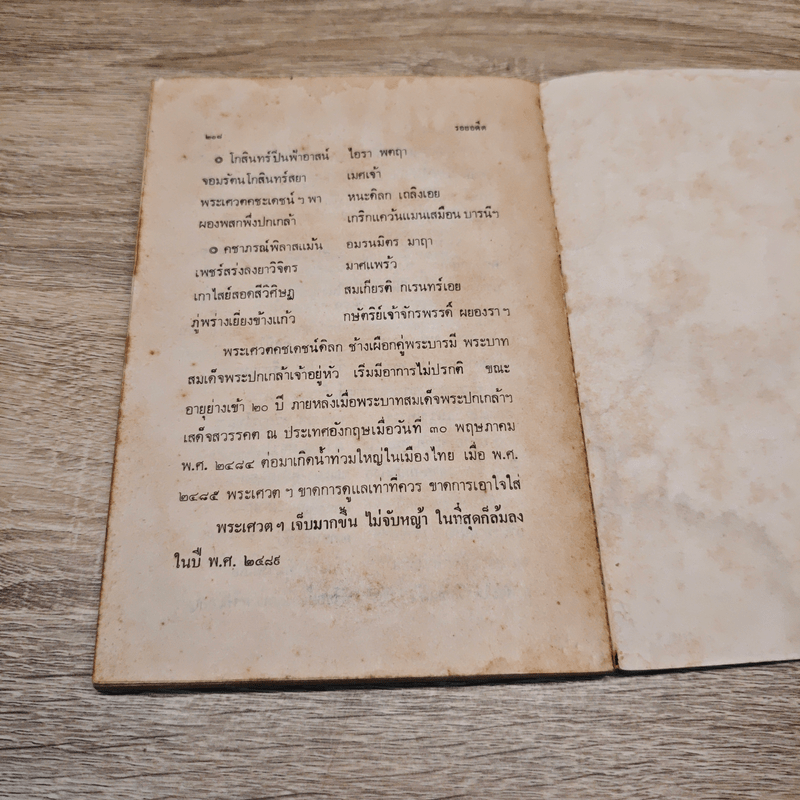 ๒๐๘ รอยอดีต
๏ โกสินทร์ปิ่นฟ้าอาสน์ ไอรา พตฤา
จอมรัตนโกสินทร์สยา เมศเจ้า
พระเศวตคชะเดชน์ ฯ พา หนะดิลก เถลิงเอย
ผองพสกพึ่งปกเกล้า เกริกแคว้นแมนเสมือน บารนีฯ
๏ คชาภรณ์พิลาสแม้น อมรนมิตร มาฤา
เพชร์สร่งลงยาวิจิตร มาศแพร้ว
เกาไสย์สอดสีวิศิษฎ สมเกียรติ กเรนทร์เอย
ภู่พร่างเยี่ยงข้างแก้ว กษัตริย์เจ้าจักรพรรดิ์ ผยองรา ฯ
พระเศวตคชเดชน์ดิลก ช้างเผือกคู่พระบารมี พระบาท
สมเด็จพระปกเกล้าเจ้าอยู่หัว เริ่มมีอาการไม่ปรกติ ขณะ
อายุย่างเข้า ๒๐ ปี ภายหลังเมื่อพระบาทสมเด็จพระปกเกล้าฯ
เสด็จสวรรคต ณ ประเทศอังกฤษเมื่อวันที่ ๓๐ พฤษภาคม
พ.ศ. ๒๔๘๔ ต่อมาเกิดน้ำท่วมใหญ่ในเมืองไทย เมื่อ พ.ศ.
๒๔๘๕ พระเศวต ฯ ขาดการดูแลเท่าที่ควร ขาดการเอาใจใส่
พระเศวต ฯ เจ็บมากขึ้น ไม่จับหญ้า ในที่สุดก็ล้มลง
ในปี พ.ศ. ๒๔๘๙